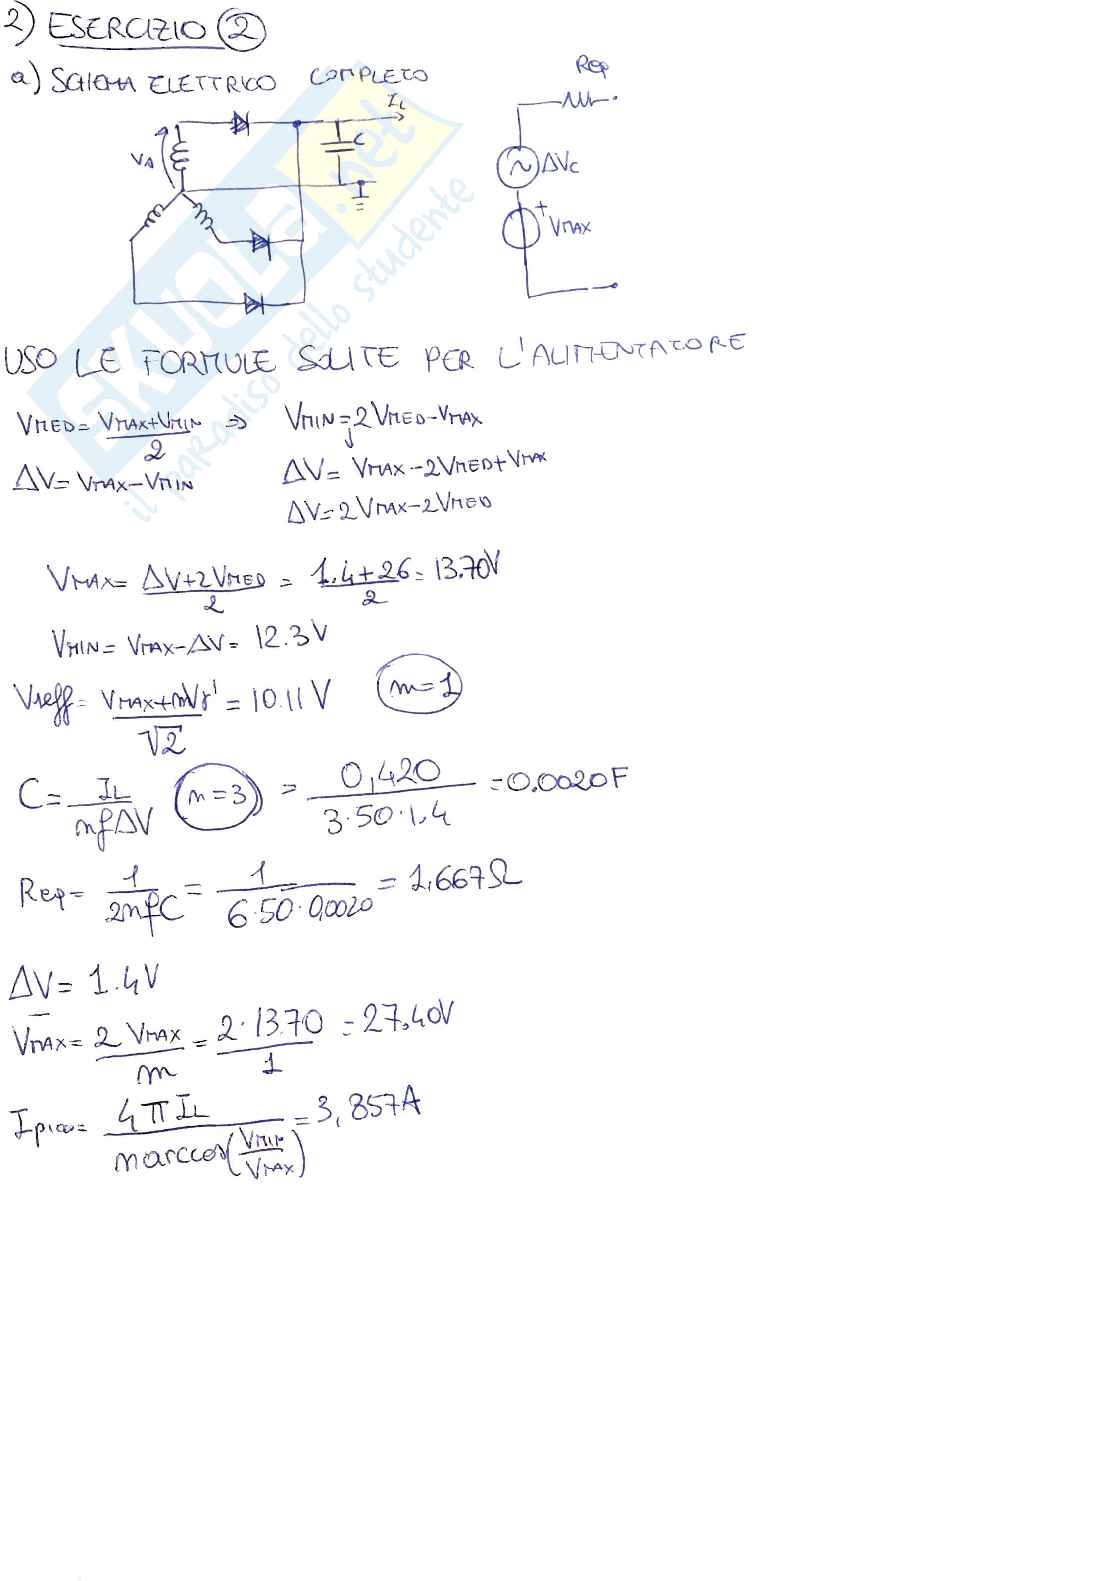 2) ESERCIZIO 2
a) SCHEMA ELETTRICO COMPLETO
Rep
IL
C
VA
ΔVc
+
VMAX
SKUOLA.net
il paradiso dello studente
USO LE FORMULE SOLITE PER L'ALIMENTATORE
VMED = (VMAX+VMIN)/2 ⇒ VMIN = 2VMED-VMAX
ΔV = VMAX-VMIN
ΔV = VMAX-2VMED+VMAX
ΔV = 2VMAX-2VMED
VMAX = (ΔV+2VMED)/2 = (1.4+26)/2 = 13.70V
VMIN = VMAX-ΔV = 12.3V
V1eff = (VMAX+mVγ')/√2 = 10.11V m=1
C = IL/(nfΔV) n=3 = 0,420/(3·50·1,4) = 0.0020F
Rep = 1/(2nfC) = 1/(6·50·0,0020) = 1,667Ω
ΔV = 1.4V
VMAX = 2VMAX/m = 2·13.70/1 = 27,40V
Ipicco = 4πIL/(n arccos(VMIN/VMAX)) = 3,857A